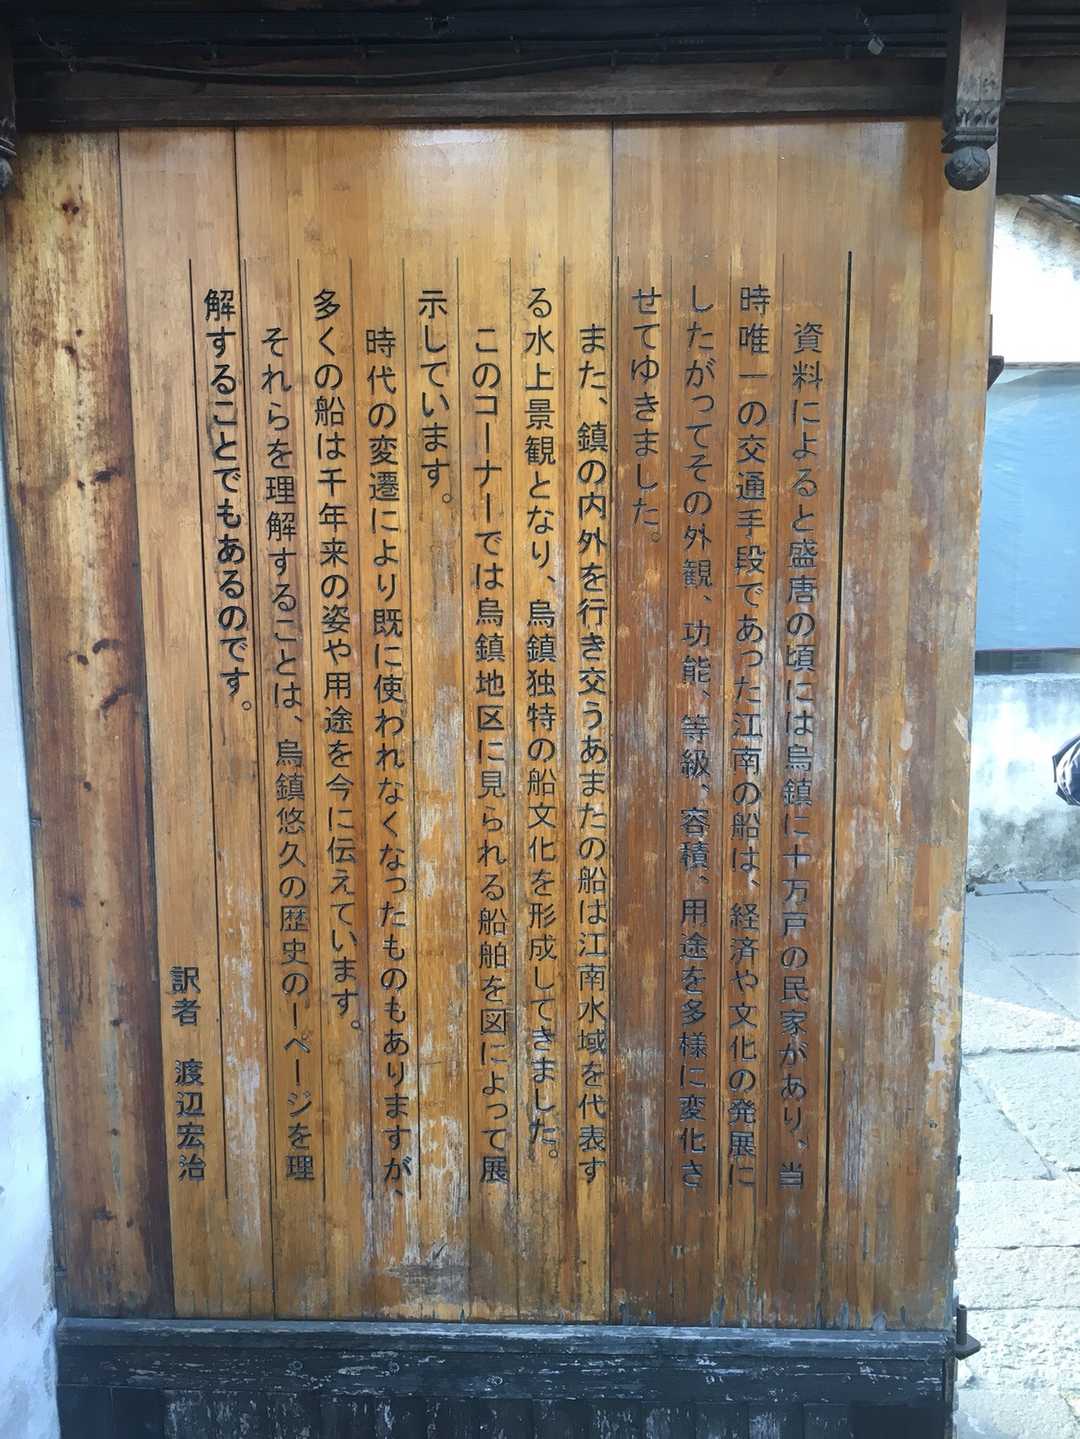 資料によると盛唐の頃には烏鎮に十万戸の民家があり、当
時唯一の交通手段であった江南の船は、経済や文化の発展に
したがってその外観、功能、等級、容積、用途を多様に変化さ
せてゆきました。
また、鎮の内外を行き交うあまたの船は江南水域を代表す
る水上景観となり、烏鎮独特の船文化を形成してきました。
このコーナーでは烏鎮地区に見られる船舶を図によって展
示しています。
時代の変遷により既に使われなくなったものもありますが、
多くの船は千年来の姿や用途を今に伝えています。
それらを理解することは、烏鎮悠久の歴史の一ページを理
解することでもあるのです。
訳者 渡辺宏治